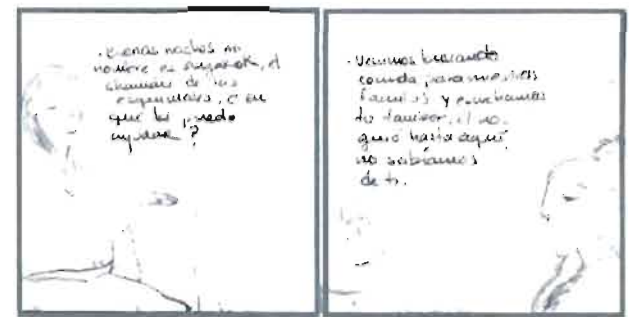 . Buenas noches mi
nombre es Angakok, el
chamán de los
esquimales, ¿ en
que los puedo
ayudar ?
. Venimos buscando
comida para nuestras
familias y escuchamos
tu tambor, el nos
guió hasta aquí
no sabíamos
de ti.